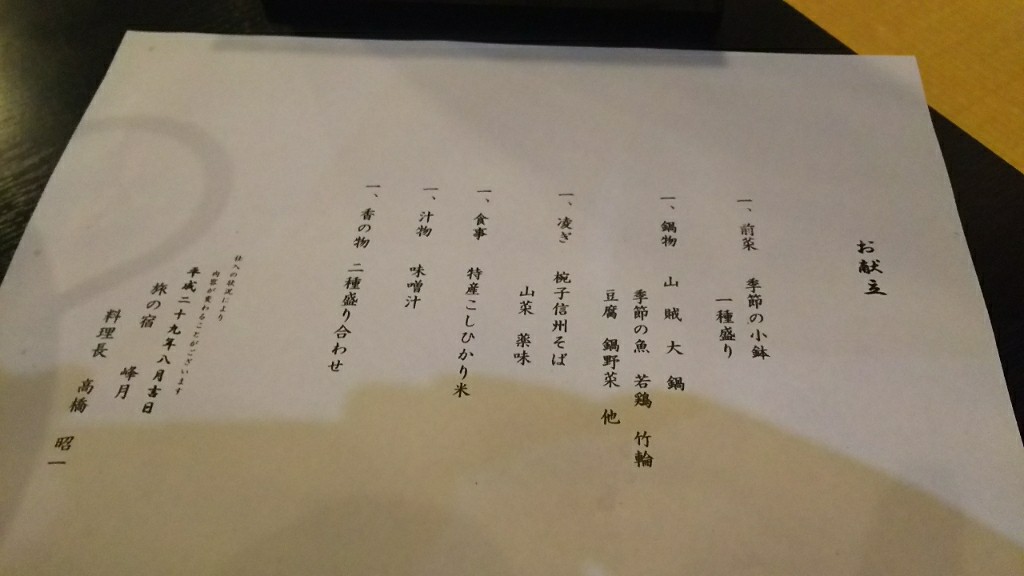 お献立
一、前菜 季節の小鉢
一種盛り
一、鍋物 山賊大鍋
季節の魚 若鶏 竹輪
豆腐 鍋野菜 他
一、凌ぎ 椀子信州そば
山菜 薬味
一、食事 特産こしひかり米
一、汁物 味噌汁
一、香の物 二種盛り合わせ
仕入の状況により
内容が変わることがございます
平成二十九年八月吉日
旅の宿 峰月
料理長 高橋 昭一